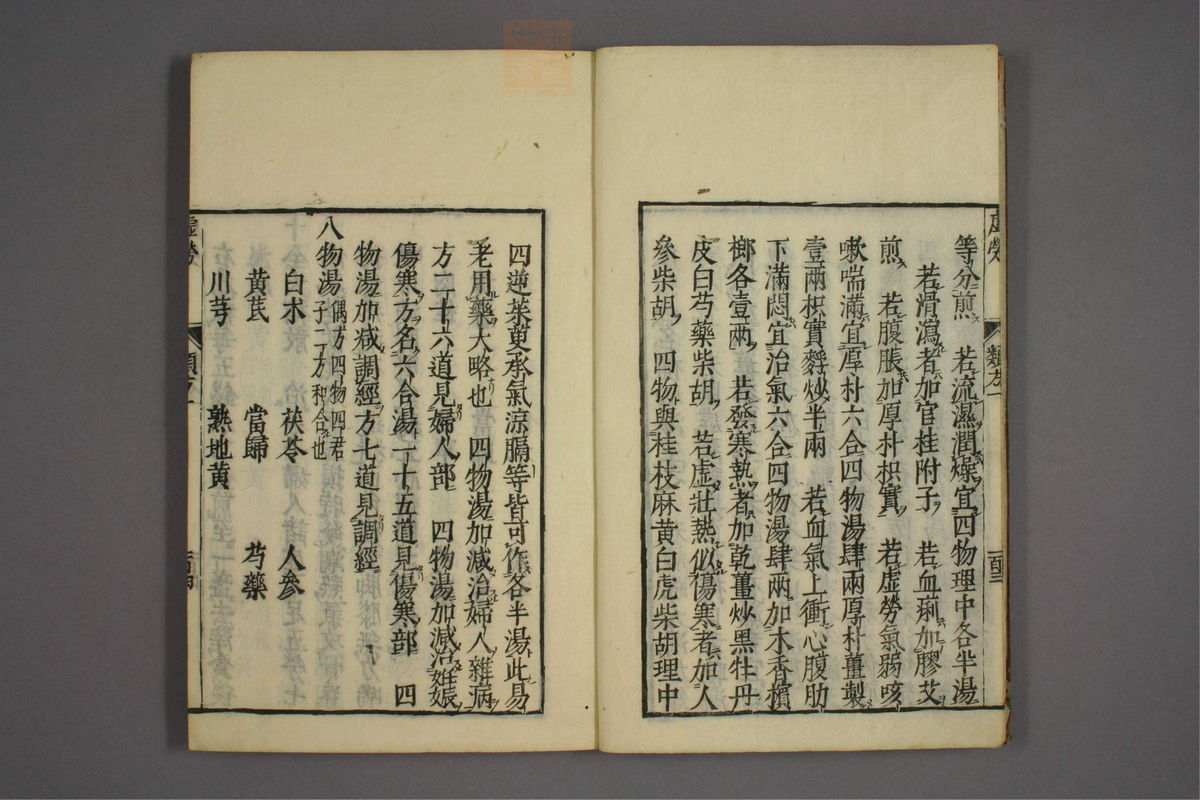 等分煎　若流濕潤燥宜四物理中各半湯
若滑瀉者加官桂附子　若血痢加膠艾
煎　若腹脹加厚朴枳實　若虛勞氣弱咳
嗽喘滿宜厚朴六合四物湯肆兩厚朴薑製
壹兩枳實麩炒半兩　若血氣上衝心腹肋
下滿悶宜治氣六合四物湯肆兩加木香檳
榔各壹兩　若發寒熱者加乾薑炒黑牡丹
皮白芍藥柴胡　若虛壯熱似傷寒者加人
參柴胡　四物與桂枝麻黃白虎柴胡理中
四逆茱萸承氣涼膈等皆可作各半湯此易
老用藥大略也　四物湯加減治婦人雜病
方二十六道見婦人部　四物湯加減治姙娠
傷寒方名六合湯一十五道見傷寒部　四
物湯加减調經方七道見調經
八物湯　偶方四物四君
子二方和合也
白朮　茯苓　人參
黃芪　當歸　芍藥
川芎　熟地黃
虛勞　類方一